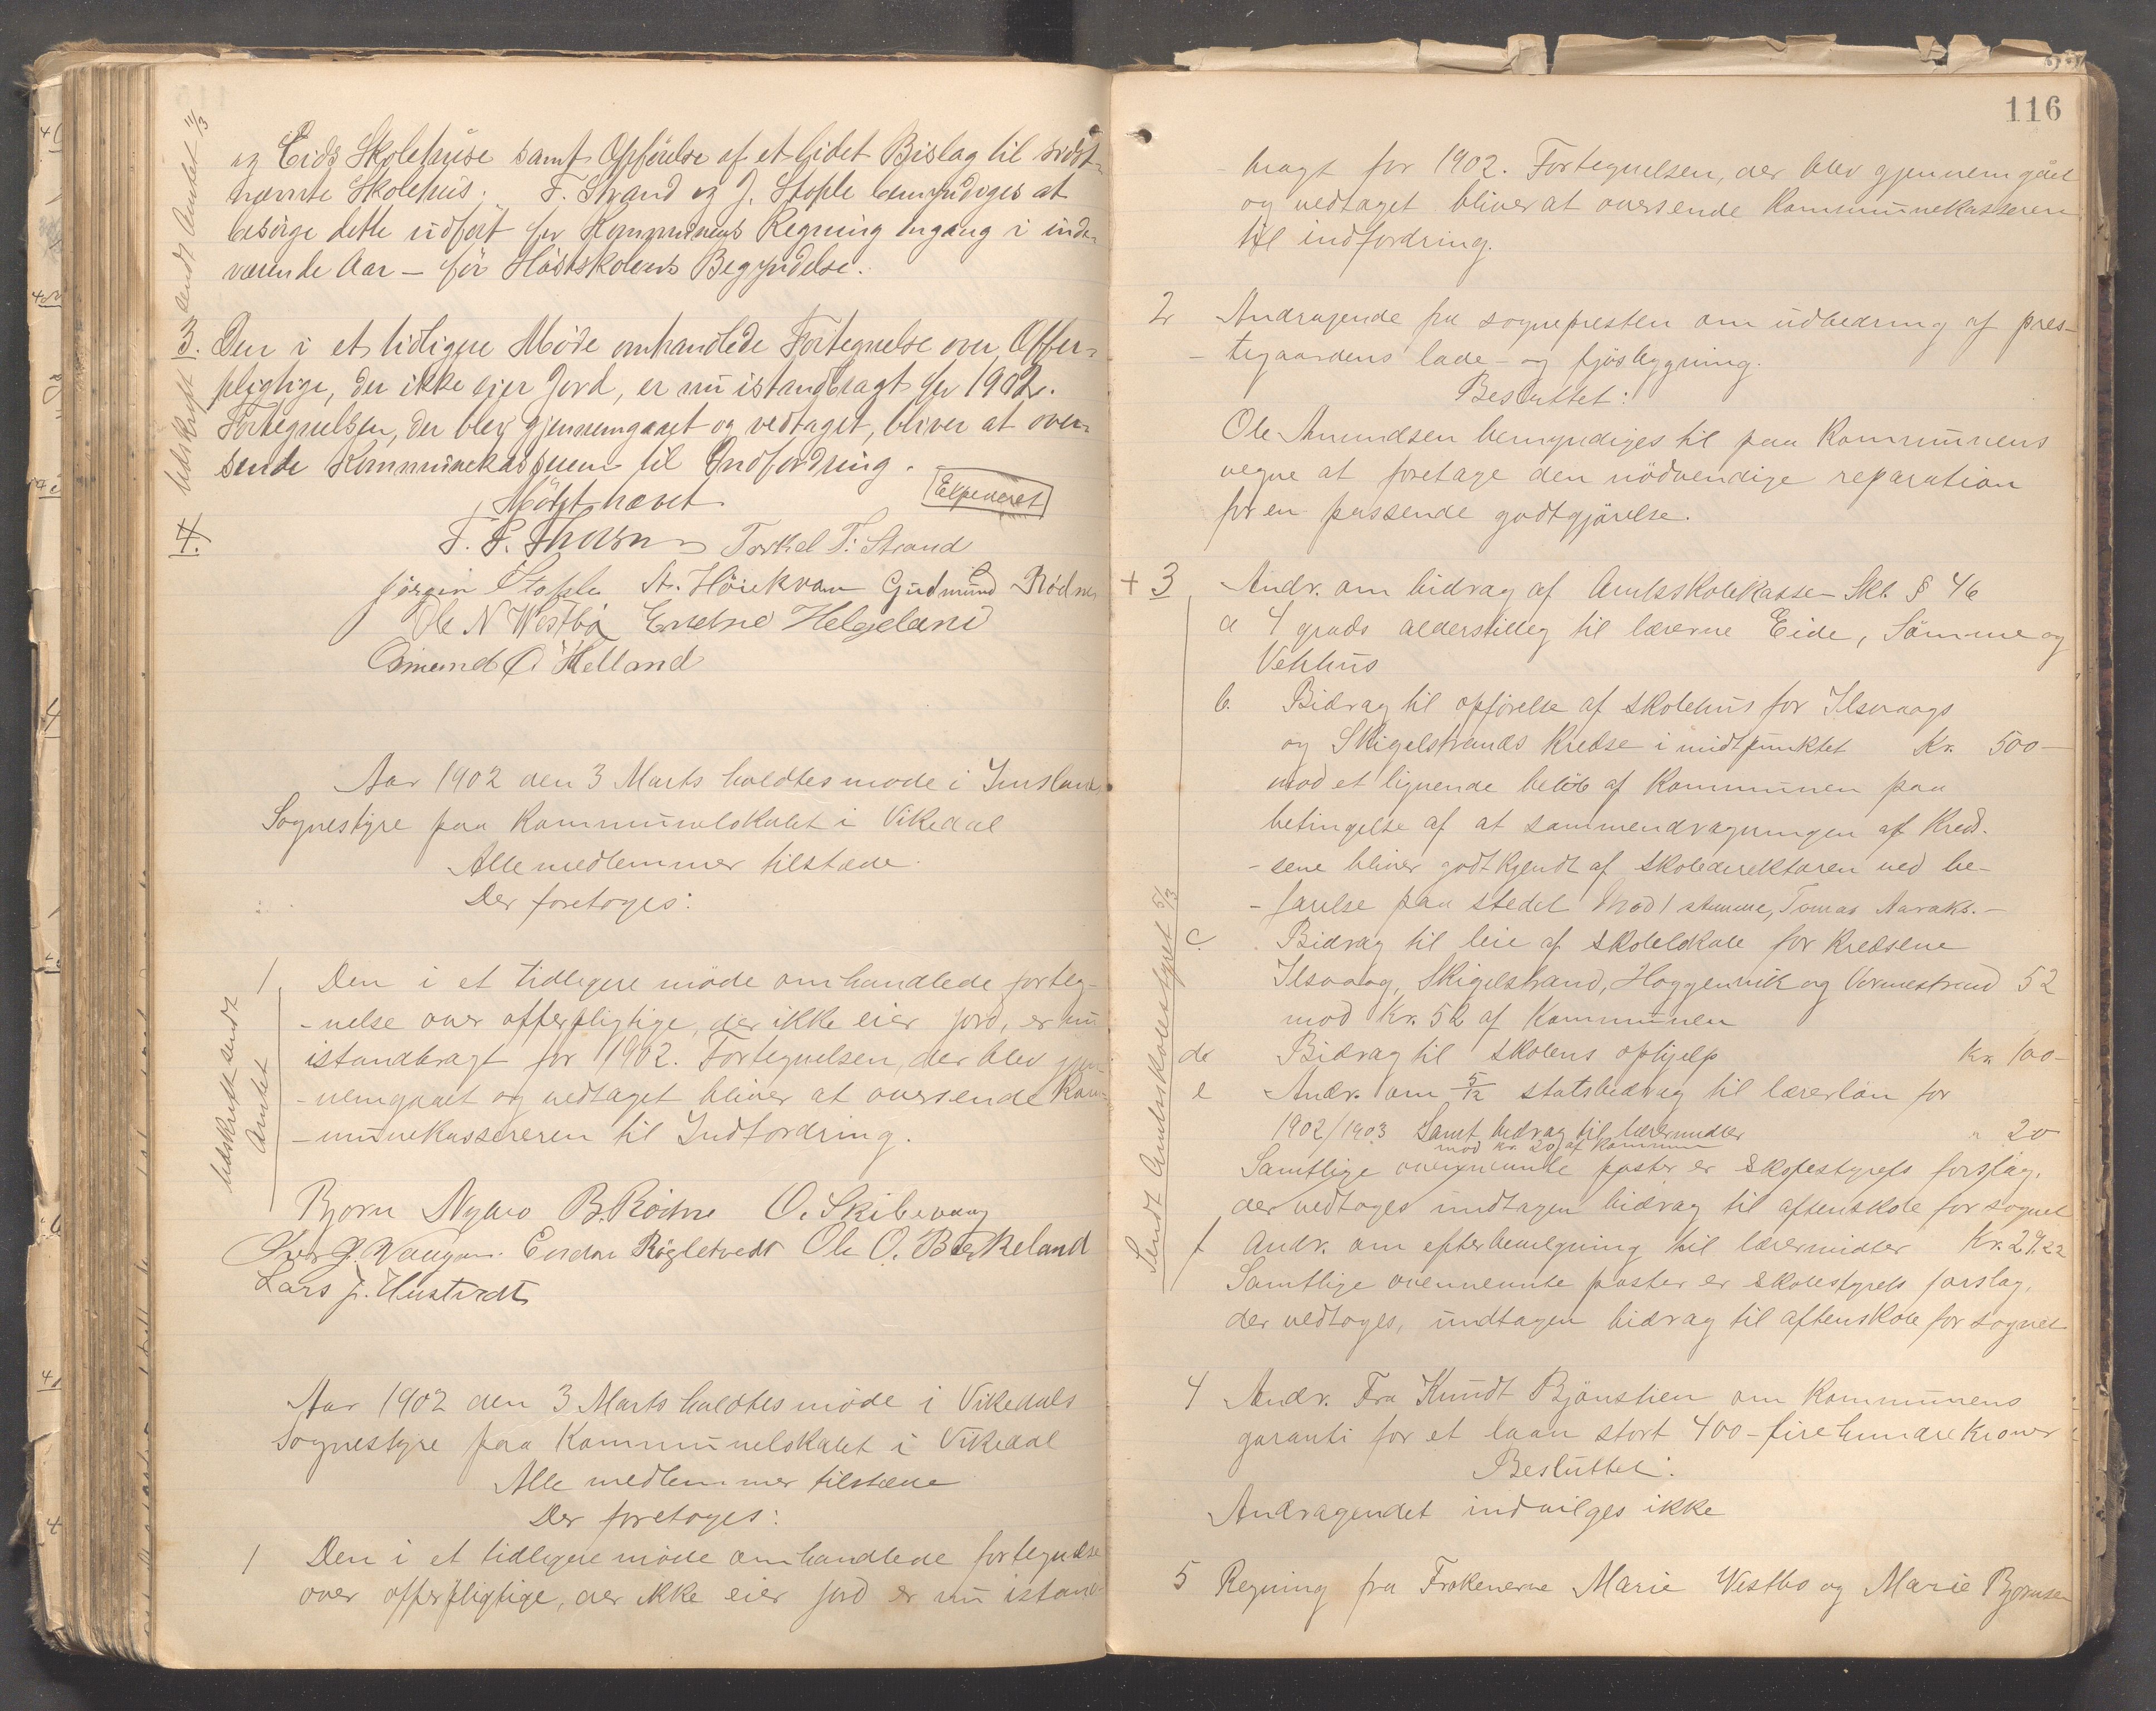 og Eids Skolehuse samt Opførelse af et lidet Bislag til sidst-
nævnte Skolehus. T. Strand og J. Stople bemyndiges at
besørge dette udført for Kommunens Regning engang i inde-
værende Aar – før Høstskolens Begyndelse.
Udskrift sendt Amtet 11/3
3. Den i et tidligere Møde omhandlede Fortegnelse over Offer-
pligtige, der ikke ejer Jord, er nu istandbragt for 1902.
Fortegnelsen, der blev gjennemgaaet og vedtaget, bliver at over-
sende Kommunekassereren til Indfordring.
Mødet hævet
Expederet
4.
Torkel T. Strand
Jørgen Stople A. Høiekvam Gudmund Rødne
Ole N Westbø Endne Helgeland
Omund O. Helland
Aar 1902 den 3 Marts holdtes møde i Imsland
Sognestyre paa Kommunelokalet i Vikedal
Alle medlemmer tilstæde.
Der foretoges:
Udskrift sendt
Amtet
1 Den i et tidligere møde omhandlede forteg-
-nelse over offerpligtige, der ikke eier jord, er nu
istandbragt for 1902. Fortegnelsen, der blev gjen-
-nemgaaet og vedtaget bliver at oversende Kom-
-munekassereren til Indfordring.
Bjorn Nybro B. Rødne O. Skibevaag
Endre Røgletvedt Ole O. Birkeland
Lars J. Hustvedt
Aar 1902 den 3 Marts holdtes møde i Vikedals
Sognestyre paa Kommunelokalet i Vikedal
Alle medlemmer tilstæde
Der foretoges:
1 Den i et tidligere møde omhandlede fortegnelse
over offerpligtige, der ikke eier jord er nu istand-
116
-bragt for 1902. Fortegnelsen, der blev gjennemgået
og vedtaget bliver at oversende Kommunekasseren
til indfordring.
2 Andragende fra sognepresten om udbedring af pres-
-tegaardens lade- og fjøsbygning.
Besluttet:
Ole Amundsen bemyndiges til paa Kommunens
vegne at foretage den nödvendige reparation
for en passende godtgjørelse.
+ 3 Andr. om bidrag af Amtsskolekassen Skl. § 46
a 4 grads alderstillæg til lærerne Eide, Sømme og
Vehhus
b. Bidrag til opførelse af skolehus for Ilsvaags
og Skigelstrands Kredse i midtpunktet Kr. 500–
mod et lignende beløb af Kommunen paa
betingelse af at sammendragningen af Kred-
-sene bliver godtkjendt af skoledirektøren ved be-
-farelse paa stedet Mod 1 stemme, Tomas Aaraks.–
c. Bidrag til leie af skolelokale for Kredsene
Ilsvaag, Skigelstrand, Hoggenvik og Vormestrand 52
mod Kr. 52 af Kommunen
d Bidrag til skolens ophjelp Kr. 100–
e Andr. om 5/12 statsbidrag til lærerløn for
1902/1903 Samt bidrag til læremidler " 20
mod kr. 20 af Kommunen
Samtlige ovennævnte poster er skolestyrets forslag,
der vedtoges undtagen bidrag til aftenskole for sognet
f Andr. om efterbevilgning til læremidler Kr. 29,22
Samtlige ovennevnte poster er skolestyrets forslag,
der vedtoges, undtagen bidrag til aftenskole for sognet
Sendt Amtsskolestyret 5/3
4 Andr. Fra Knudt Bjønstien om Kommunens
garanti for et laan stort 400 – fire hundre kroner
Besluttet:
Andragendet indvilges ikke
5 Regning fra Frøkenerne Marie Vestbo og Marie Bjørnsen